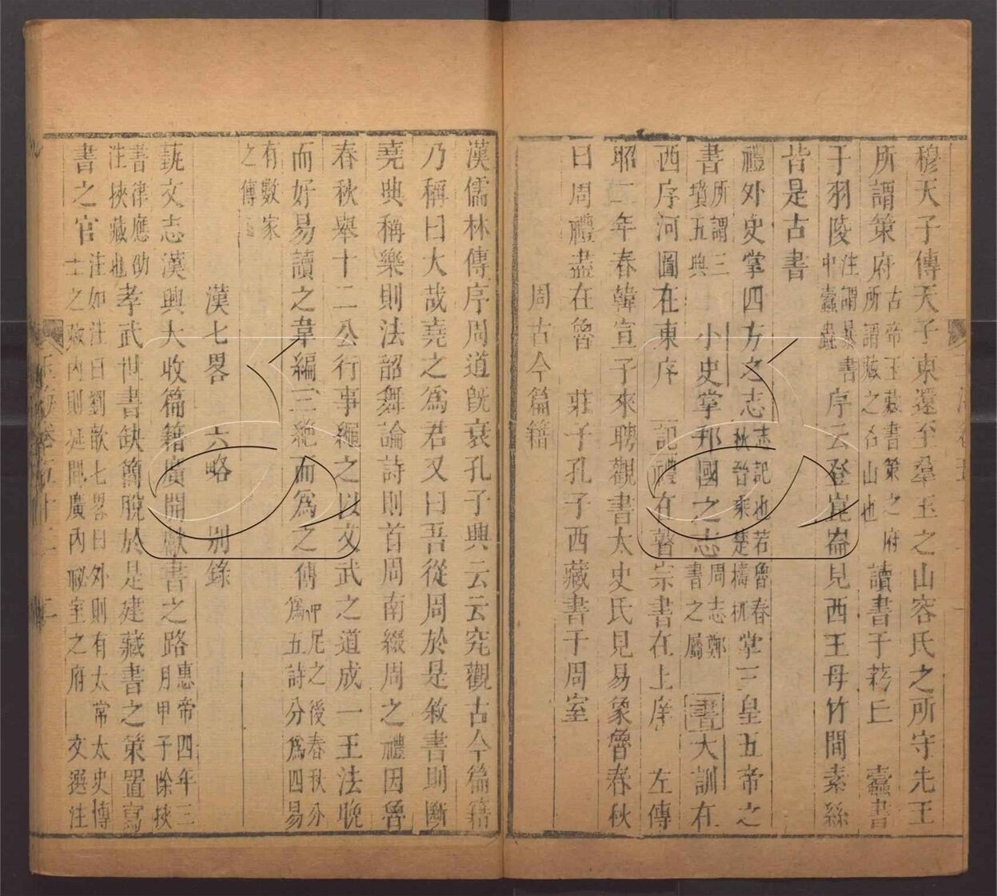 穆天子傳天子東還至羣玉之山容氏之所守先王
所謂策府古帝王藏書策之府所謂藏之名山也讀書于菞丘蠹書
于羽陵注謂暴書中蠹蟲序云登崑崙見西王母竹間素絲
皆是古書
禮外史掌四方之志志記也若魯春秋晉乘楚檮杌掌三皇五帝之
書所謂三墳五典小史掌邦國之志周志鄭書之屬書大訓在
西序河圖在東序記禮在瞽宗書在上庠左傳
昭二年春韓宣子來聘觀書太史氏見易象魯春秋
曰周禮盡在魯莊子孔子西藏書于周室
周古今篇籍
漢儒林傳序周道旣衰孔子興云云究觀古今篇籍
乃稱曰大哉堯之爲君又曰吾從周於是敘書則斷
堯典稱樂則法韶舞論詩則首周南綴周之禮因魯
春秋舉十二公行事繩之以文武之道成一王法晚
而好易讀之韋編三絶而爲之傳仲尼之後春秋分爲五詩分爲四易
有數家之傳
漢七畧 六略 別錄
蓺文志漢興大收篇籍廣開獻書之路惠帝四年三月甲子除挾
書律應劭注挾藏也孝武世書缺簡脫於是建藏書之策置寫
書之官注如注曰劉歆七畧曰外則有太常太史博士之藏内則延閣廣内祕室之府 文選注
玉海卷五十二 二